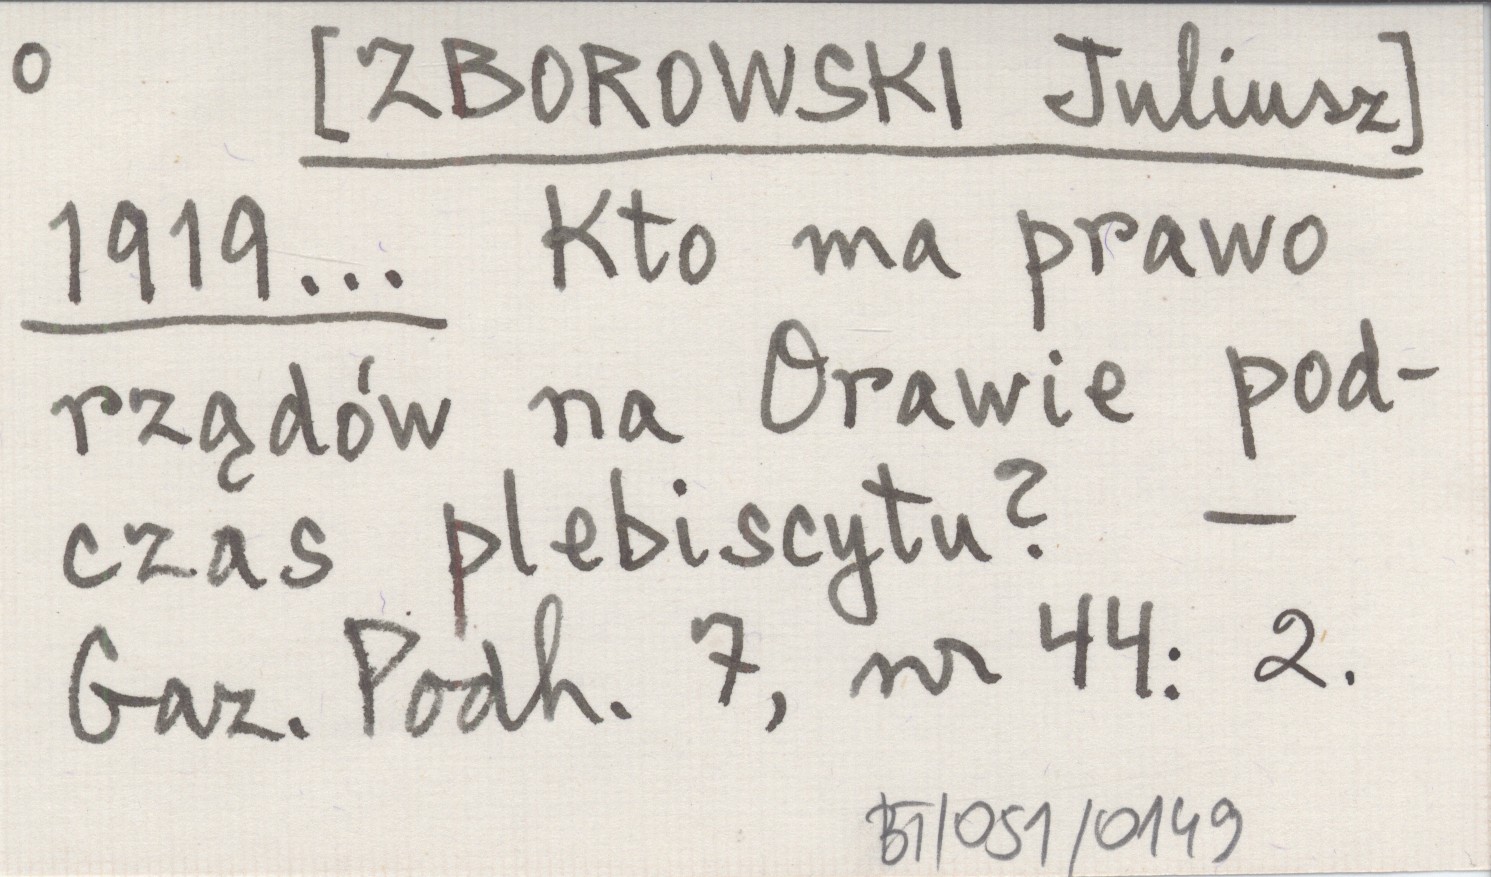 o [ZBOROWSKI Juliusz]
1919... Kto ma prawo
rządów na Orawie pod-
czas plebiscytu? —
Gaz. Podh. 7, nr 44: 2.
BT/051/0149